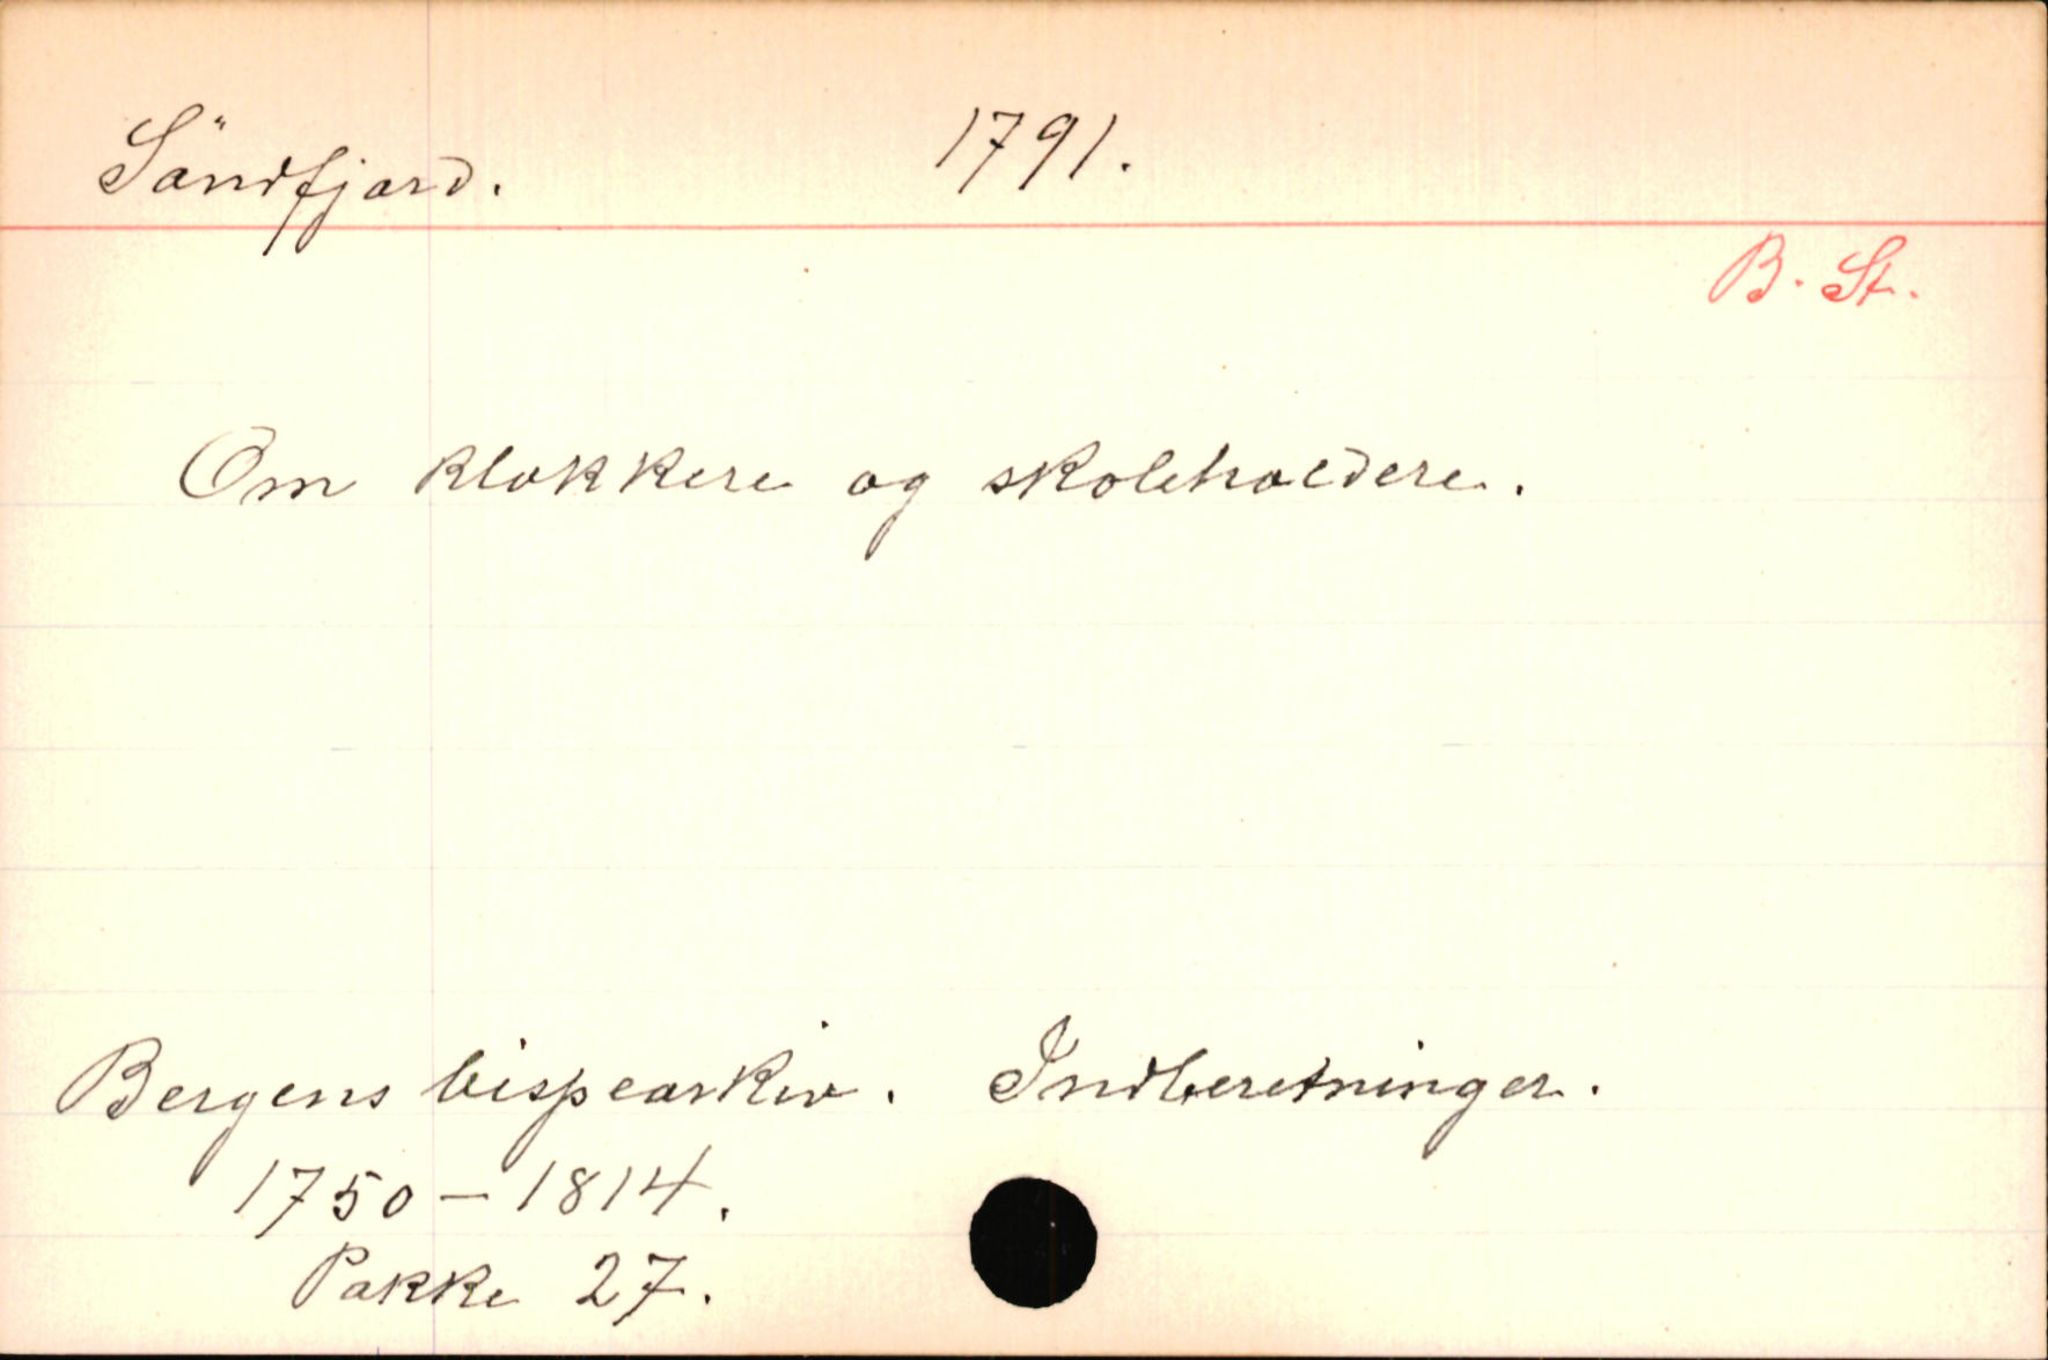 Söndfjord. 1791.
B. St.
Om klokkere og skoleholdere.
Bergens bispearkiv. Indberetninger.
1750-1814.
Pakke 27.